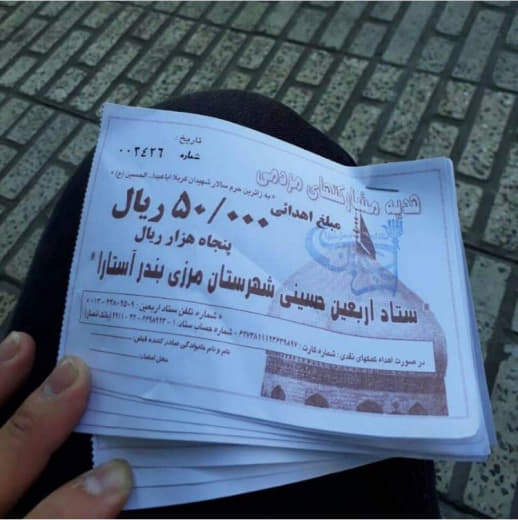 تاریخ :
شماره ۰۰۲۴۲۶
هدیه مشارکتهای مردمی
« به زائرین حرم سالار شهیدان کربلا اباعبدا.. الحسین (ع) »
مبلغ اهدائی ۵۰/۰۰۰ ریال
پنجاه هزار ریال
" ستاد اربعین حسینی شهرستان مرزی بندر آستارا "
« شماره تلفن ستاد اربعین :
در صورت اهداء کمکهای نقدی : شماره کارت :
شماره حساب ستاد :
نام و نام خانوادگی صادر کننده قبض :
محل امضاء :